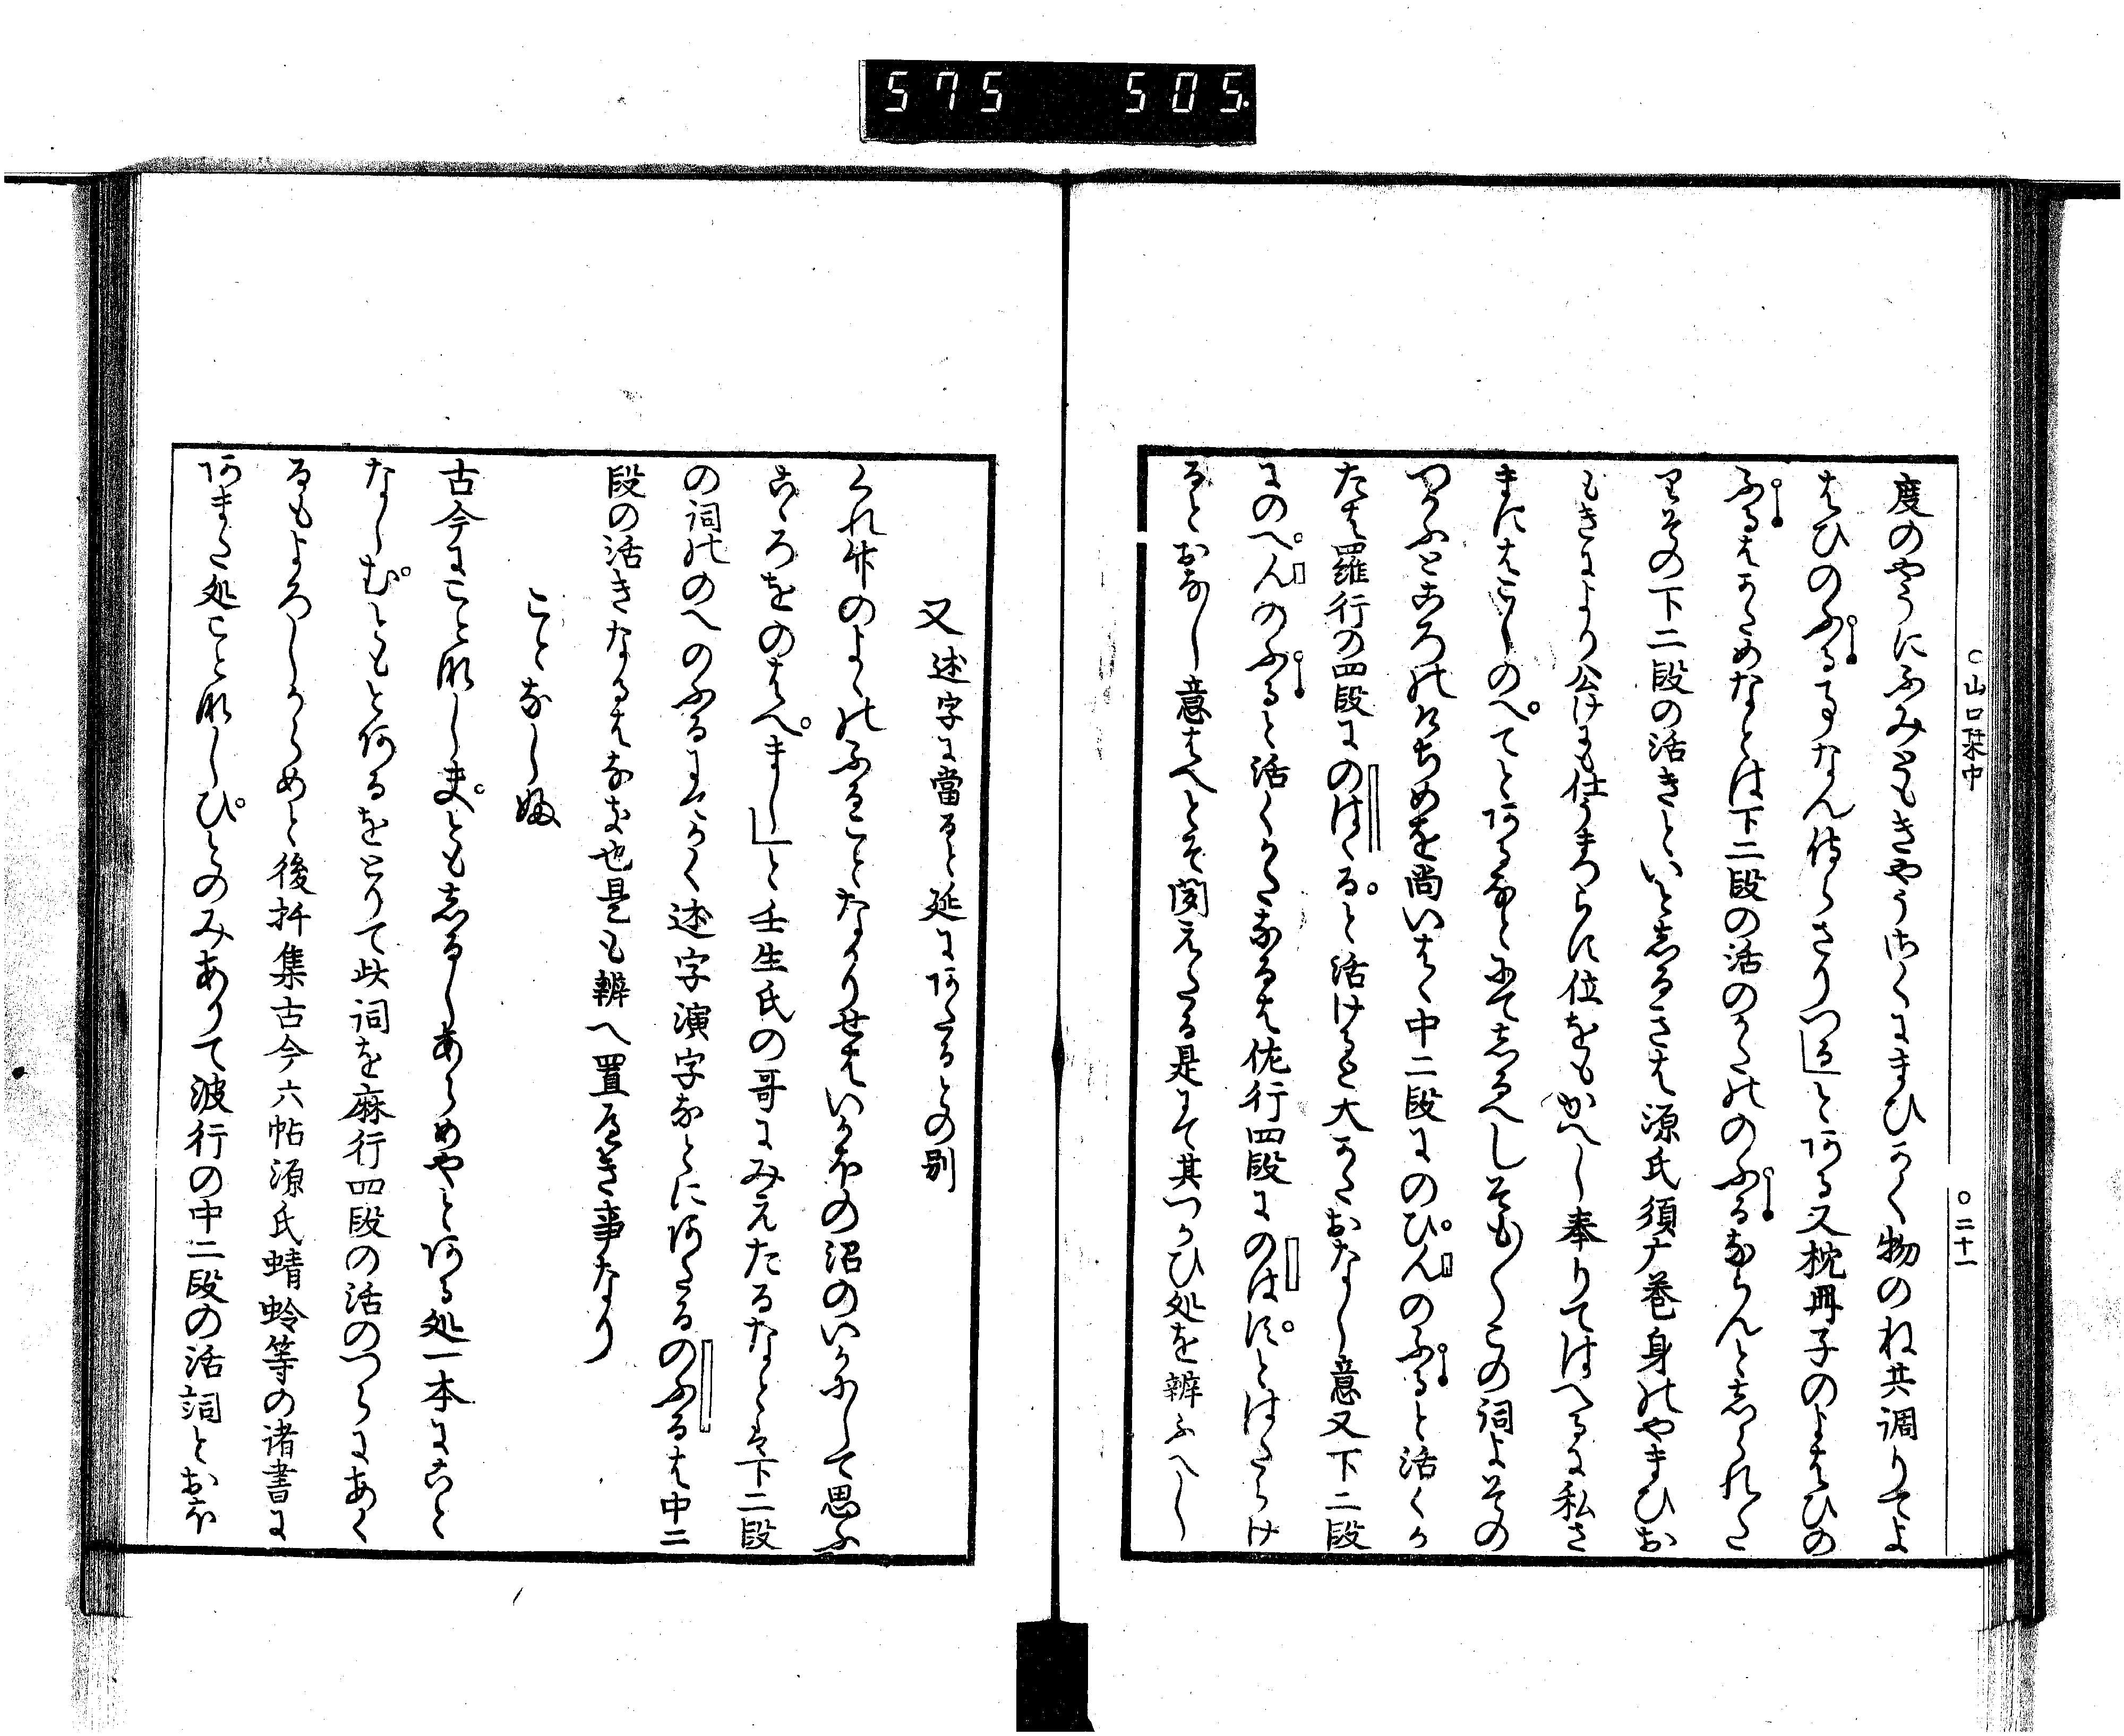 575 505.
○山口栞中
○二十一
度のやうにふみともきやうかくにまひかく物のね共調りてよ
はひのふる事なん侍らさりつる」とある又枕冊子のよはひの
ふるはかためなとは下二段の活のかたのふるならんとしられた
りその下二段の活きといとしるきは源氏須广巻身のやまひお
もきにより公けにも仕うまつらす位をもかへし奉りてはへるに私さ
まにはこしのへてとあるなとにてしるへしそも〳〵この詞よその
つかふところのけちめを尚いはゝ中二段にのひんのふると活くか
たは羅行の四段にのはゝると活けると大かたおなし意又下二段
にのへんのふると活くかたなるは佐行四段にのはすとはたらけ
るとおなし意はへとそ聞えたる是にて其つかひ処を辨ふへし
又述字に當ると延にあたるとの別
くれ竹のよゝのふることなかりせはいかほの沼のいかにして思ふ
こゝろをのはへまし」と壬生氏の哥にみえたるなとは下二段
の詞のへのふるにてかく述字演字なとにあたるのふるは中二
段の活きなるはなき也是も辨へ置へき事なり
ことなしふ
古今にことなしまともしるしあらめやとある処一本にこと
なしむともとあるをとりて此詞を麻行四段の活のつらにあく
るもよろしからめと後拝集古今六帖源氏蜻蛉等の诸書に
あまた処ことなしひとのみありて波行の中二段の活詞とおほ